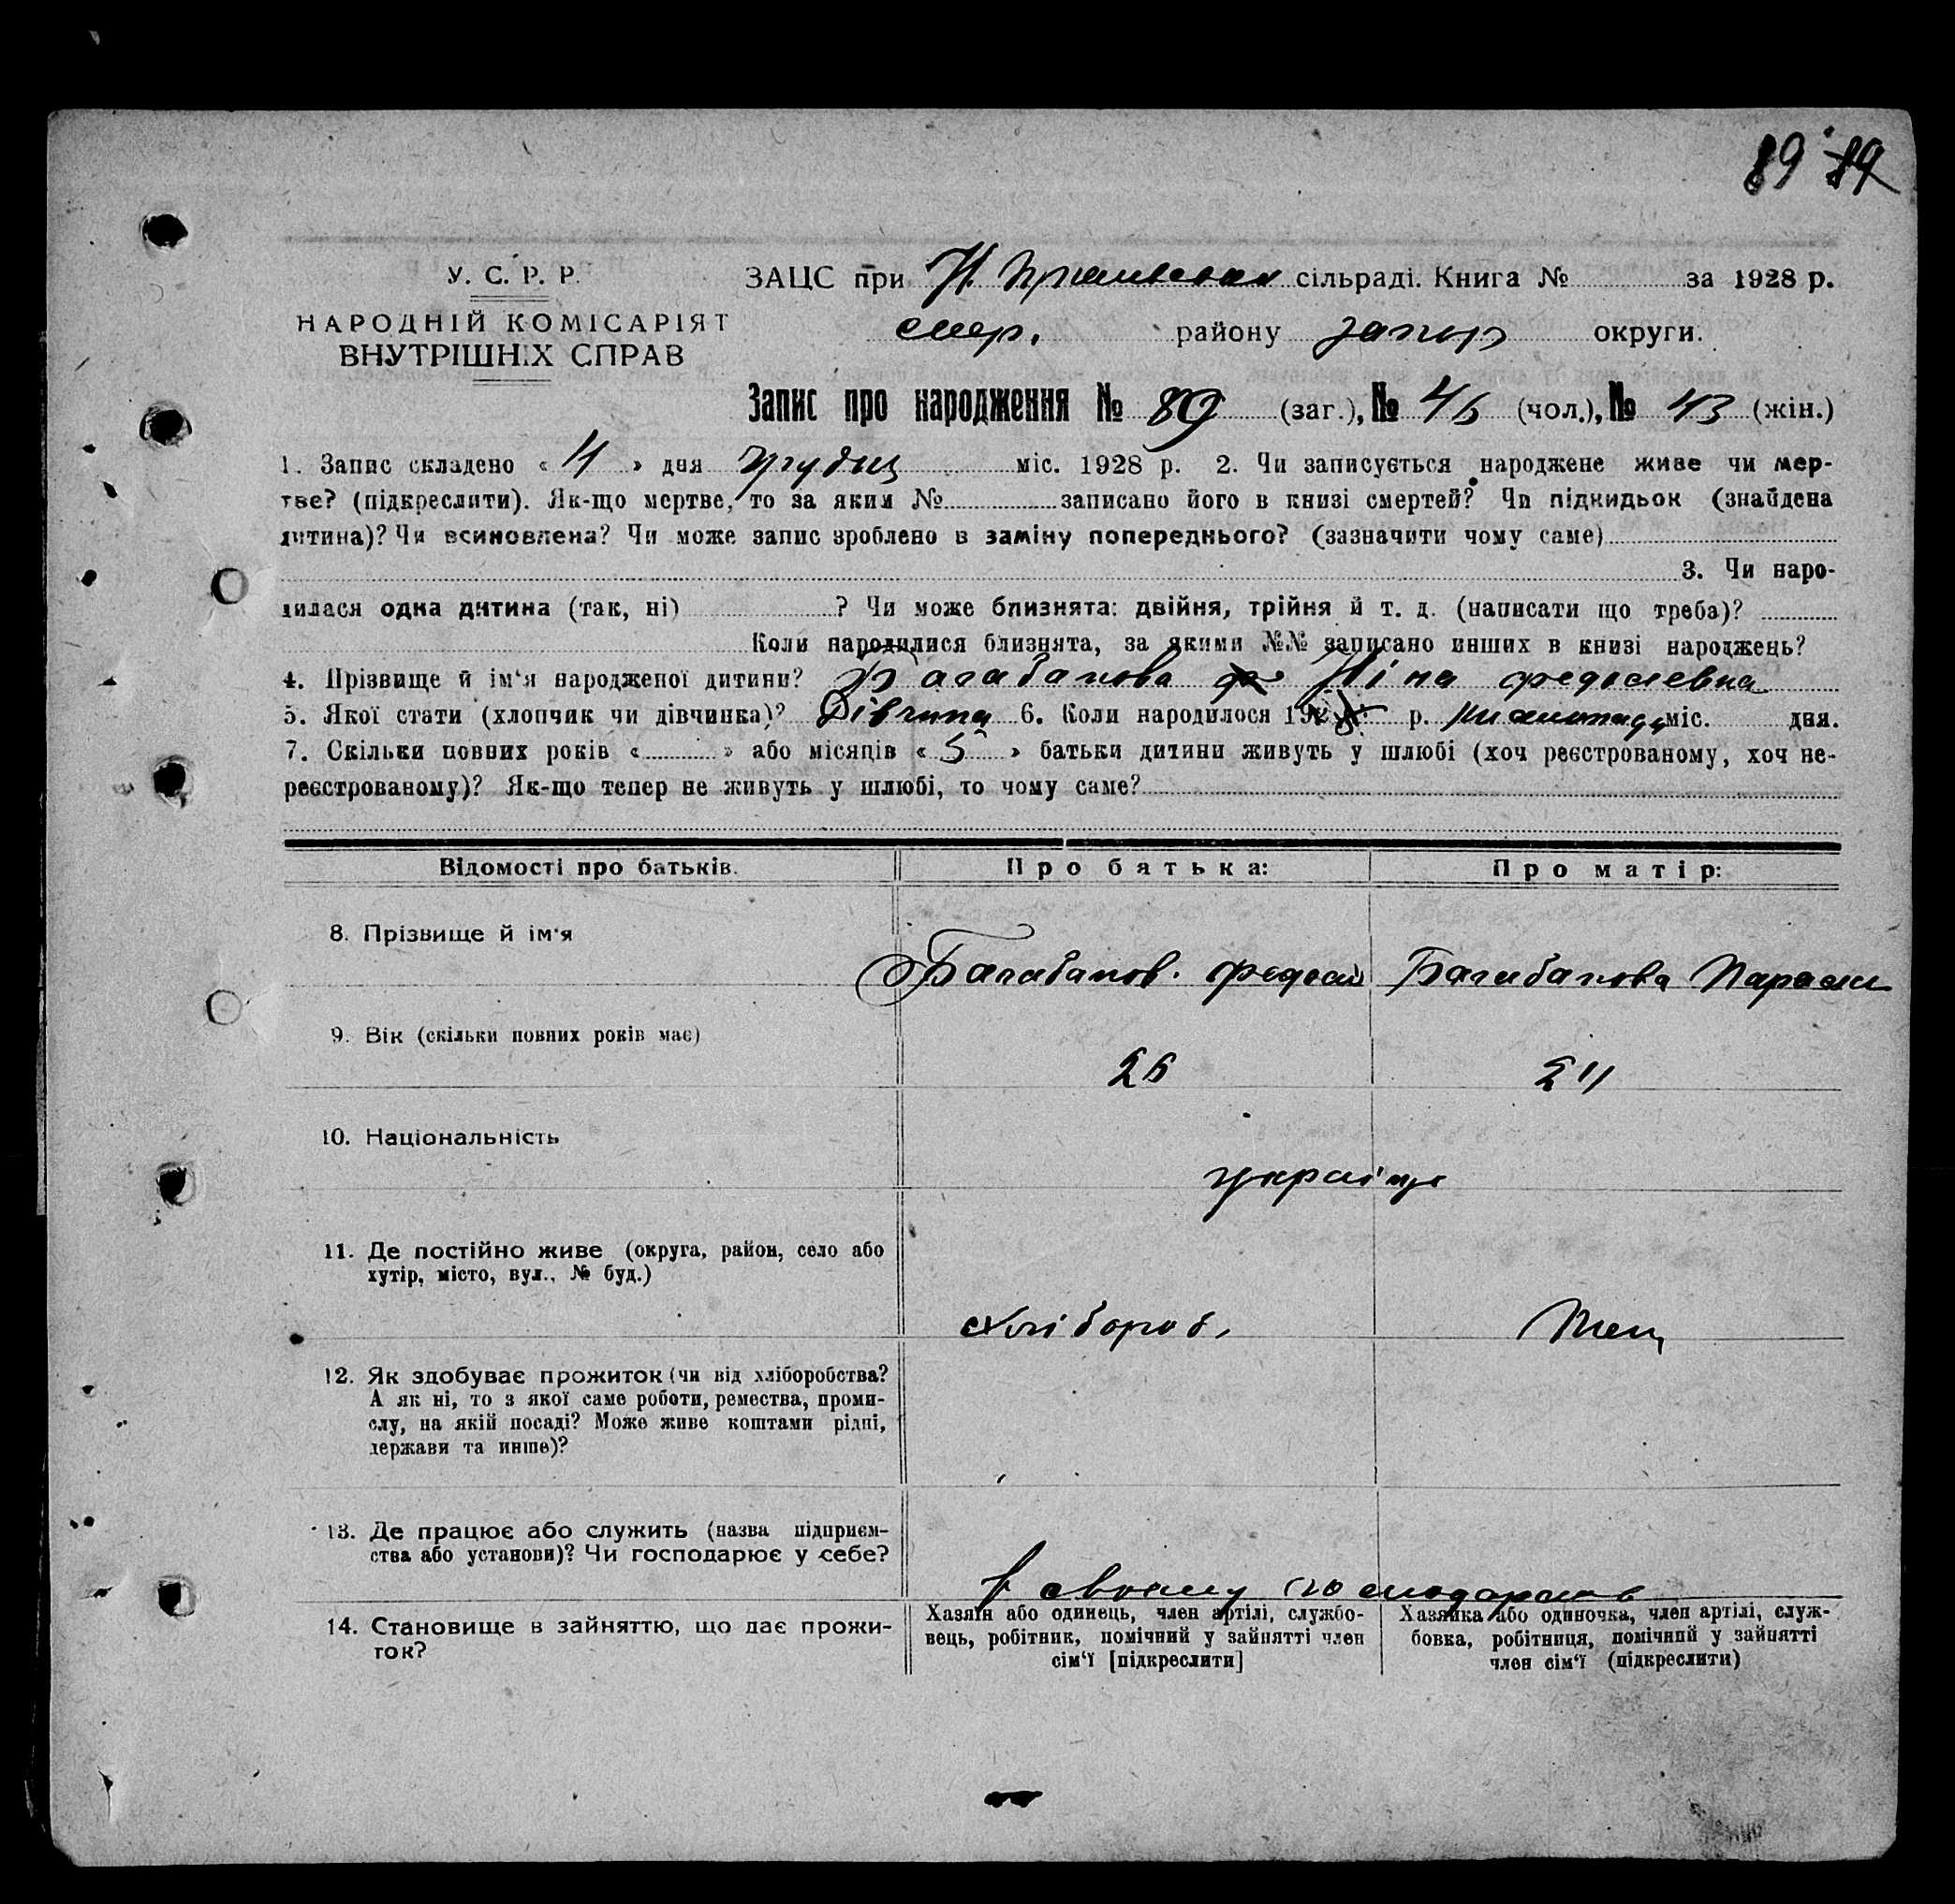 89 89
У. С. Р. Р.
НАРОДНІЙ КОМІСАРІЯТ
ВНУТРІШНІХ СПРАВ
ЗАЦС при Н. сільраді. Книга № за 1928 р.
району запор округи.
Запис про народження № 89 (заг.), № 46 (чол.), № 43 (жін.)
1. Запис складено « 4 » дня грудня міс. 1928 р. 2. Чи записується народжене живе чи мер-
тве? (підкреслити). Як-що мертве, то за яким № записано його в книзі смертей? Чи підкидьок (знайдена
дитина)? Чи всиновлена? Чи може запис зроблено в заміну попереднього? (зазначити чому саме)
3. Чи наро-
дилася одна дитина (так, ні) ? Чи може близнята: двійня, трійня й т. д. (написати що треба)?
Коли народилися близнята, за якими №№ записано инших в книзі народжень?
4. Прізвище й ім'я народженої дитини? Багабанова Ніна федосіевна
5. Якої стати (хлопчик чи дівчинка)? Дівчина 6. Коли народилося 192 р. листопада міс. дня.
7. Скільки повних років « » або місяців « 5 » батьки дитини живуть у шлюбі (хоч реєстрованому, хоч не-
реєстрованому)? Як-що тепер не живуть у шлюбі, то чому саме?
Відомості про батьків. Про батька: Про матір:
8. Прізвище й ім'я
Багабанов федосій Багабанова Параски
9. Вік (скільки повних років має)
26
10. Національність
україці
11. Де постійно живе (округа, район, село або
хутір, місто, вул., № буд.)
хлібороб,
12. Як здобуває прожиток (чи від хліборобства?
А як ні, то з якої саме роботи, ремества, проми-
слу, на якій посаді? Може живе коштами рідні,
держави та инше)?
13. Де працює або служить (назва підприєм-
ства або установи)? Чи господарює у себе?
в своєму господарстві
14. Становище в зайняттю, що дає прожи-
ток?
Хазяїн або одинець, член артілі, службо-
вець, робітник, помічний у зайнятті член
сім'ї [підкреслити]
Хазяйка або одиночка, член артілі, служ-
бовка, робітниця, помічний у зайнятті
член сім'ї (підкреслити)